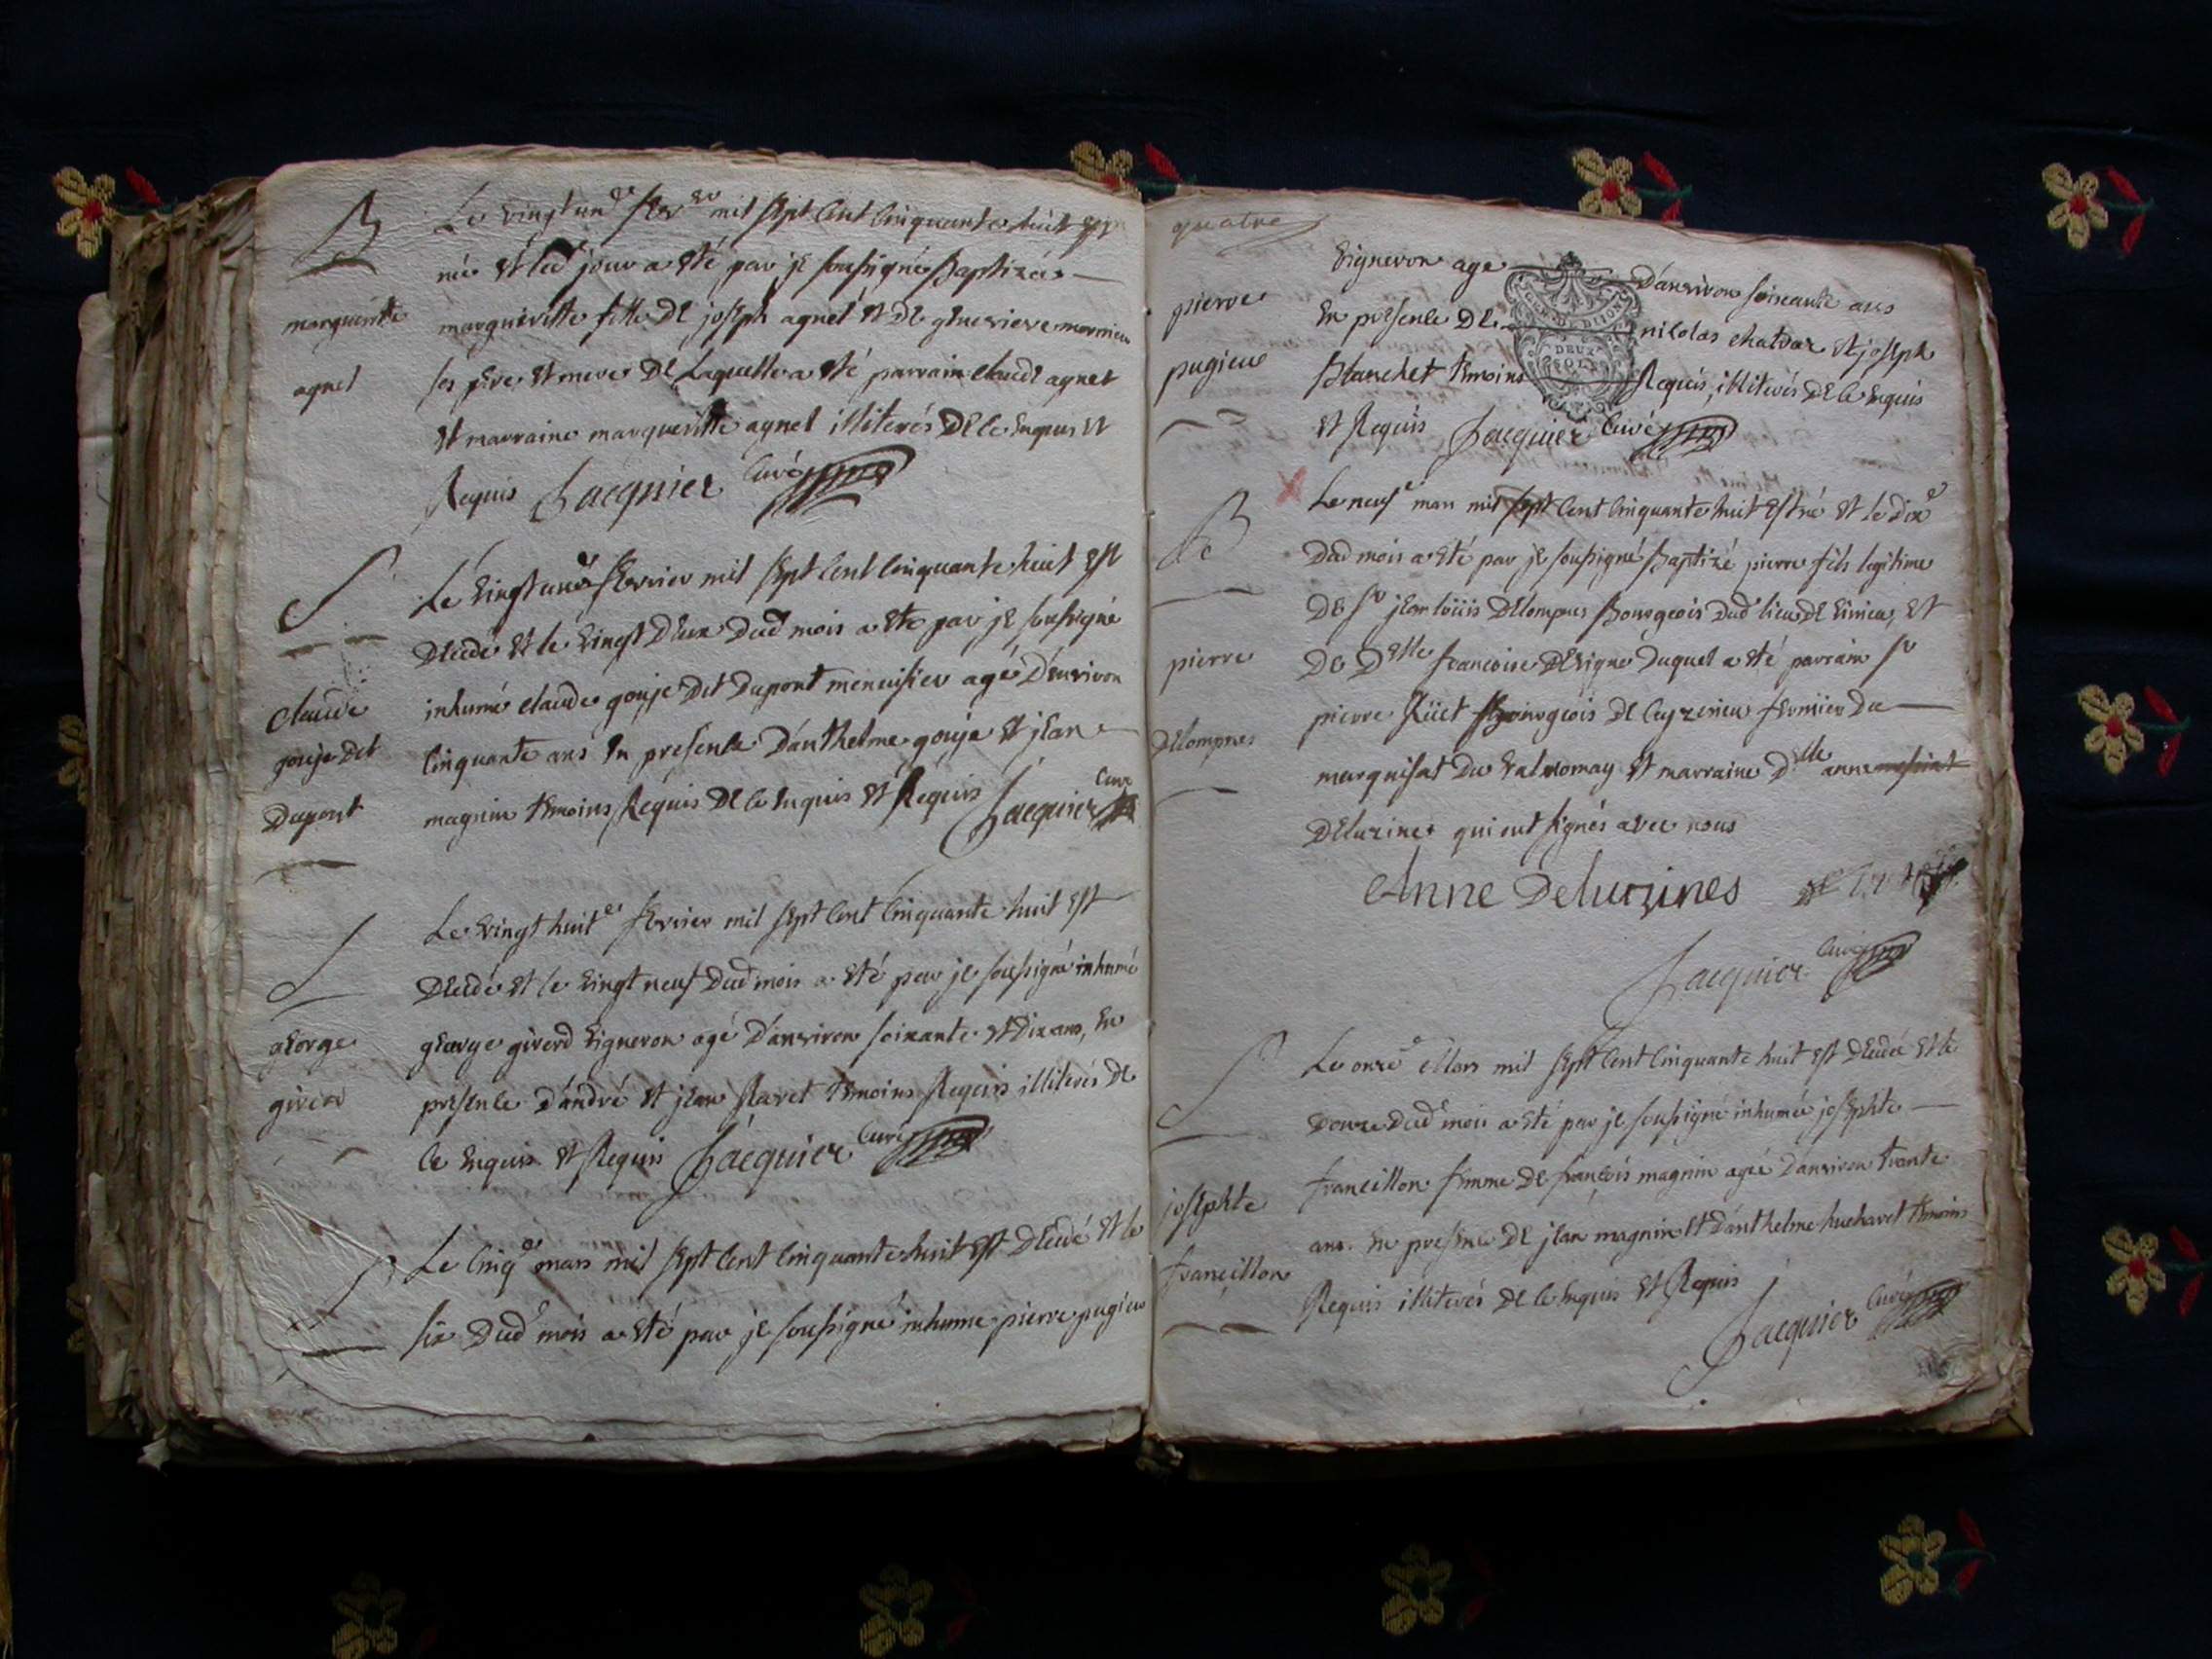 B
Le vingt un e fev er mil sept cent cinquante huit est
née et led jour a eté par je soussigné baptizée
marguerite
margueritte fille de joseph agnel et de genevieve mornieu
agnel
ses pere et mere de laquelle a eté parrain claude agnel
et marraine margueritte agnel illiterés de ce enquis et
Requis Jacquier curé
S
Le vingt un e fevrier mil sept cent cinquante huit est
decedé et le vingt deux dud mois a eté par je soussigné
claude
inhumé claude gouje dit dupont menuisier agé d'environ
gouje dit
cinquante ans en presence d'anthelme gouje et jean
Dupont
magnin temoins Requis de ce enquis et Requis Jacquier curé
S
Le vingt huit e fevrier mil sept cent cinquante huit est
decedé et le vingt neuf dud mois a eté par je soussigné inhumé
george
george girerd vigneron agé d'anviron soixante et dix ans, en
girerd
presence d'andré et jean temoins Requis illiterés de
ce enquis et Requis Jacquier curé
S
Le cinq e mars mil sept cent cinquante huit est decedé et le
six dud mois a eté par je soussigné inhumé pierre pugieu
quatre
pierre
pugieu
vigneron agé d'anviron soixante ans
en presence de nicolas chatvar et joseph
Blanchet temoins Requis, illiterés de ce enquis
et Requis Jacquier curé
GEN. DE DIJON
DEUX
SOLS
B
Le neuf e mars mil sept cent cinquante huit est né et le dix e
dud mois a eté par je soussigné baptizé pierre fils legitime
de s r jean loüis Delompnes Bourgeois dud lieu de virieu, et
pierre
de D elle francoise Devigne duquel a eté parrain s r
Delompnes
pierre Rüet Bourgeois de ceyzerieu fermier du
marquisat du valromay et marraine D. lle anne
Deluzines qui ont signés avec nous
Anne Deluzines
Jacquier curé
S
Le onze e Mars mil sept cent cinquante huit est decedée et le
douze dud mois a eté par je soussigné inhumée josephte
josephte
francillon femme de francois magnin agée d'anviron trente
francillon
ans. en presence de jean magnin et d'anthelme hucharet temoins
Requis illiterés de ce enquis et Requis
Jacquier curé